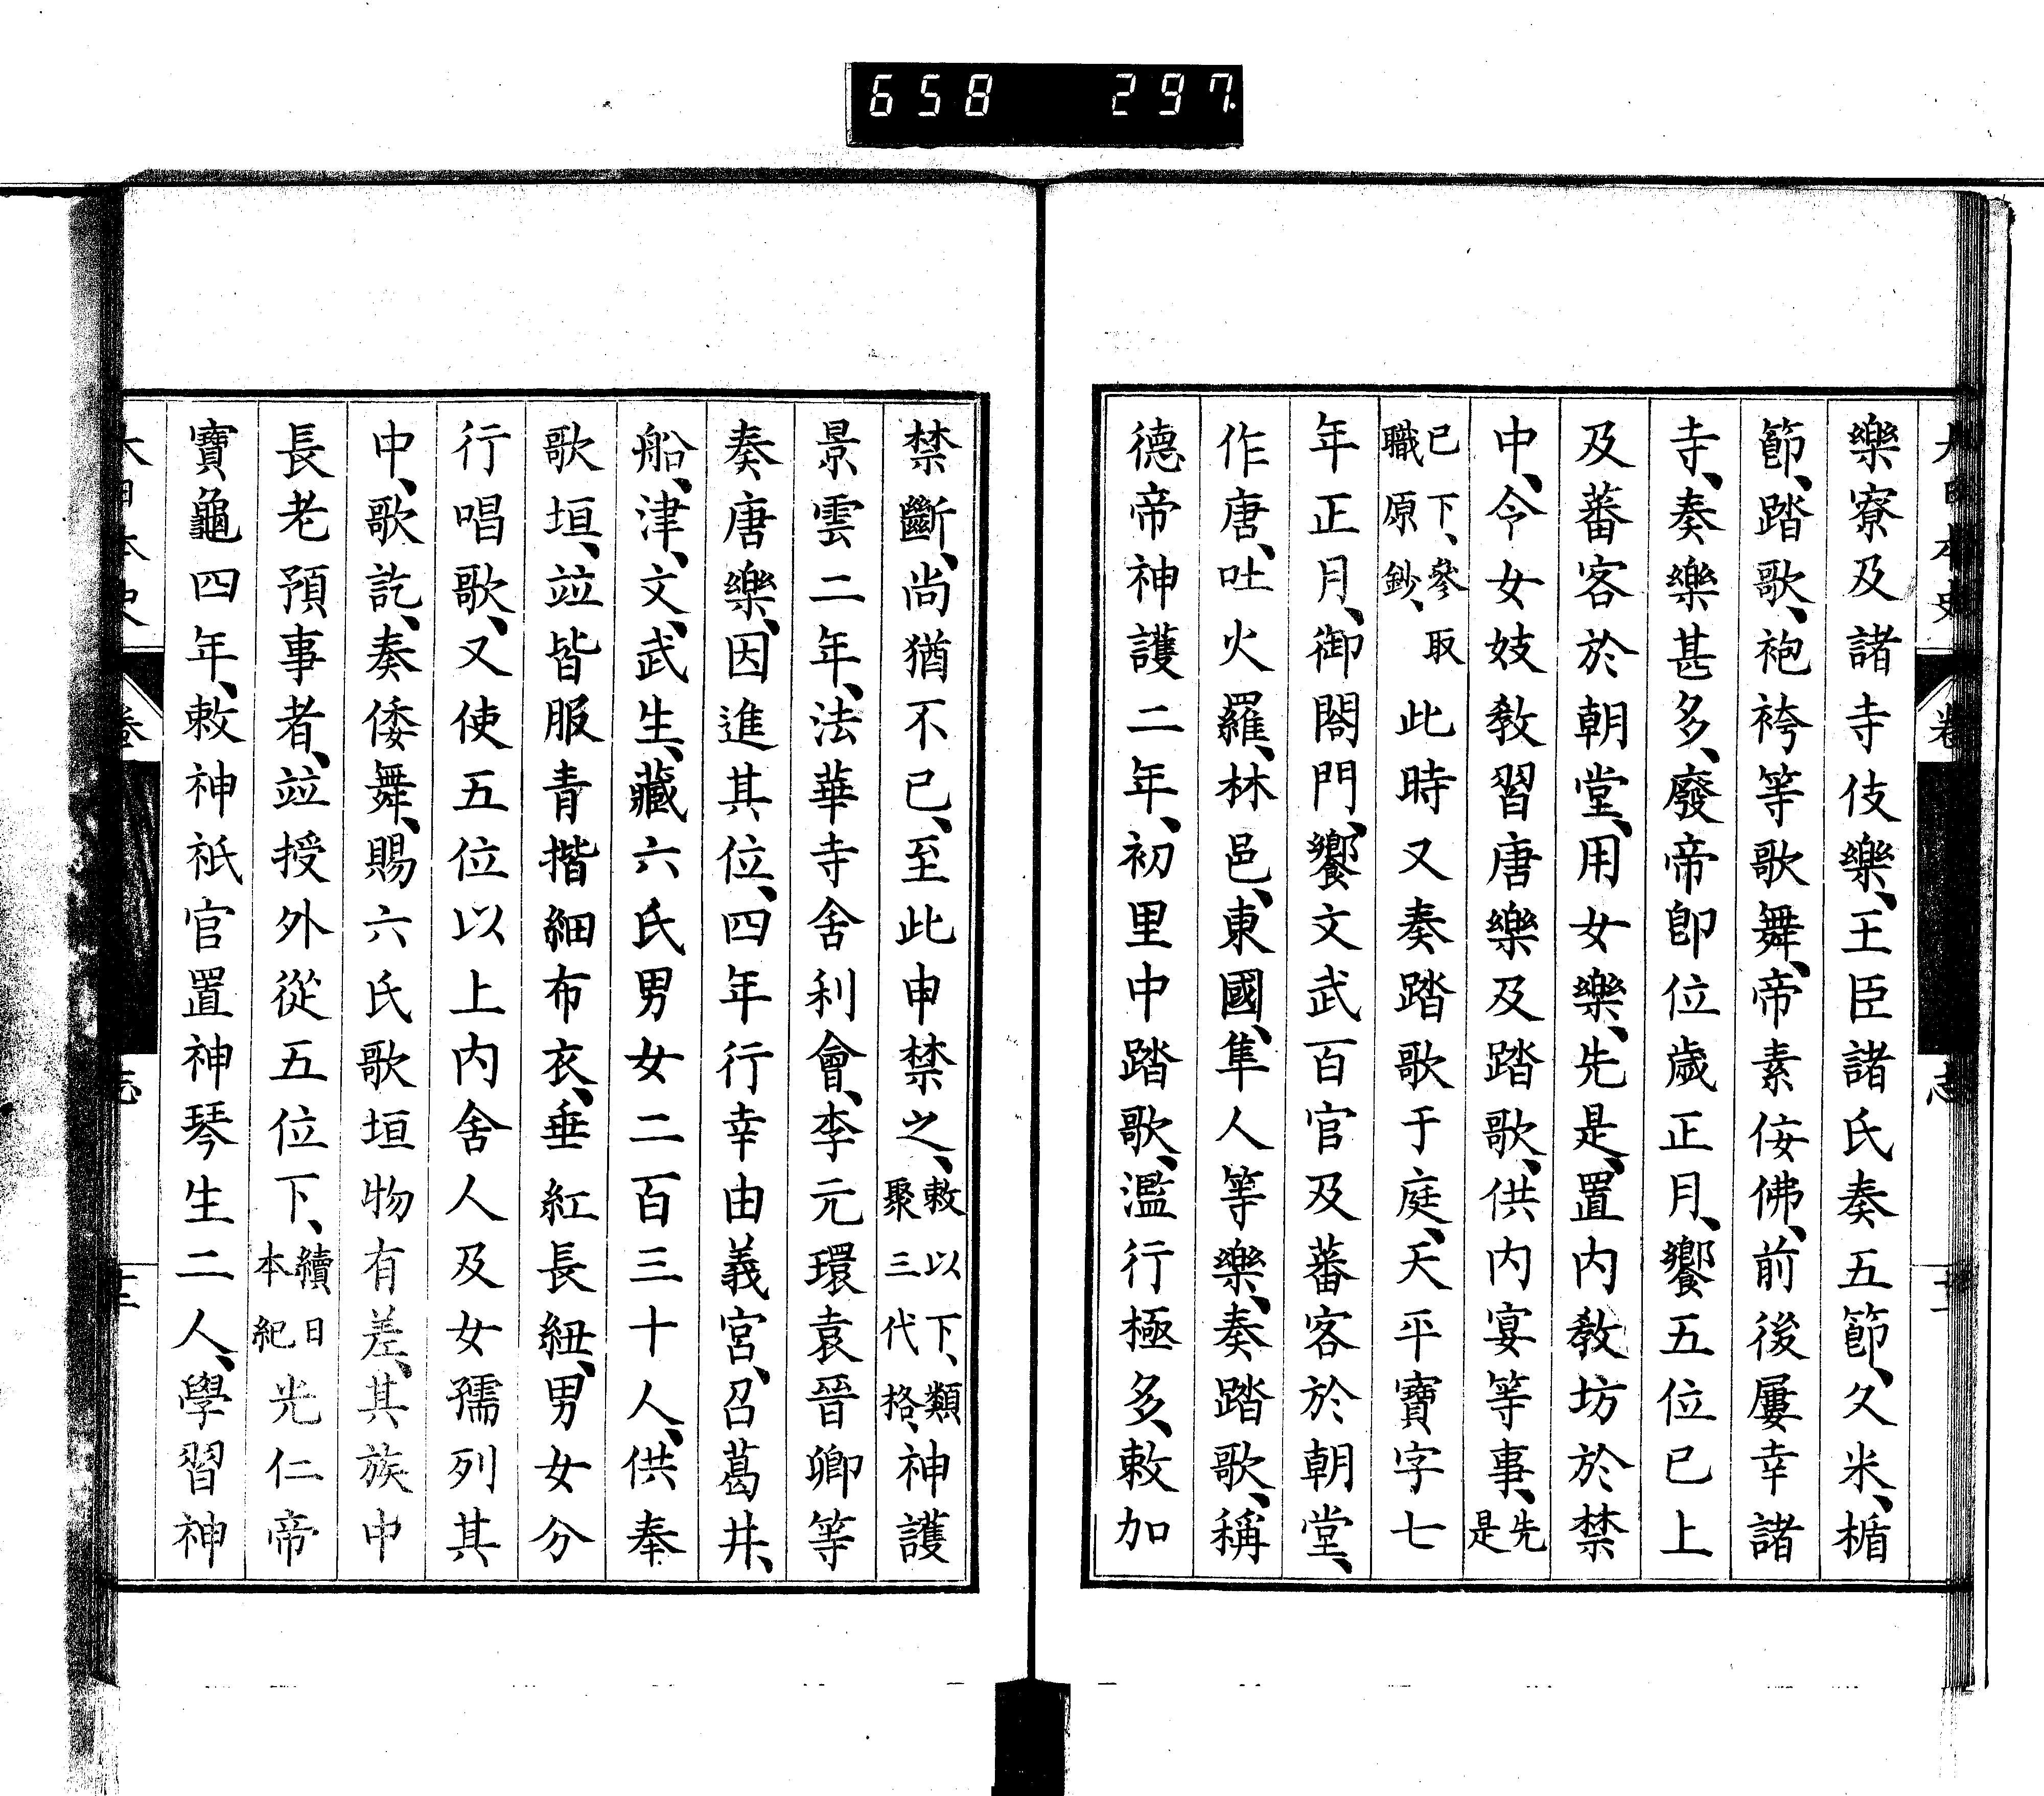 658 297.
大日本史 卷 志
樂寮及諸寺伎樂、王臣諸氏奏五節、久米、楯
節、踏歌、袍袴等歌舞、帝素侫佛、前後屢幸諸
寺、奏樂甚多、廢帝卽位歲正月、饗五位已上
及蕃客於朝堂、用女樂、先是、置内教坊於禁
中、令女妓教習唐樂及踏歌、供内宴等事、先是
已下、參取職原鈔、此時又奏踏歌于庭、天平寶字七
年正月、御閤門、饗文武百官及蕃客於朝堂、
作唐、吐火羅、林邑、東國、隼人等樂、奏踏歌、稱
德帝神護二年、初里中踏歌、濫行極多、敕加
禁斷、尚猶不已、至此申禁之、敕以下、類聚三代格、神護
景雲二年、法華寺舍利會、李元環袁晉卿等
奏唐樂、因進其位、四年行幸由義宮、召葛井、
船、津、文、武生、藏六氏男女二百三十人、供奉
歌垣、竝皆服青揩細布衣、垂紅長紐、男女分
行唱歌、又使五位以上内舍人及女孺列其
中、歌訖、奏倭舞、賜六氏歌垣物有差、其族中
長老預事者、竝授外從五位下、續日本紀光仁帝
寶龜四年、敕神祇官置神琴生二人、學習神
大日本史 卷 志